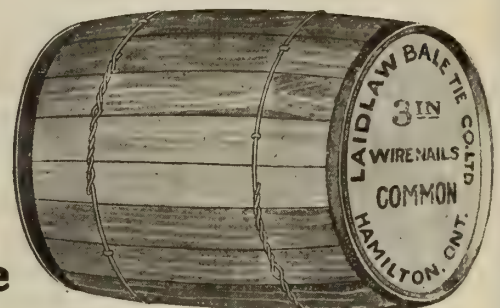 LAIDLAW BALE TIE CO. LTD
3 IN
WIRE NAILS
COMMON
HAMILTON, ONT.
e